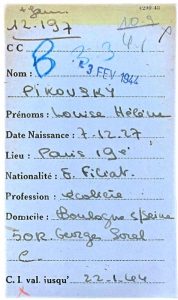 12.197
C C
B
3 FEV 1944
Nom :
PIKOVSKY
Prénoms : Louise Hélène
Date Naissance : 7.12.27
Lieu : Paris 19e
Nationalité : F.
Profession : écolière
Domicile : Boulogne s/Seine
50 R. Georges Sorel
C
C. I val. jusqu' 22-1.44